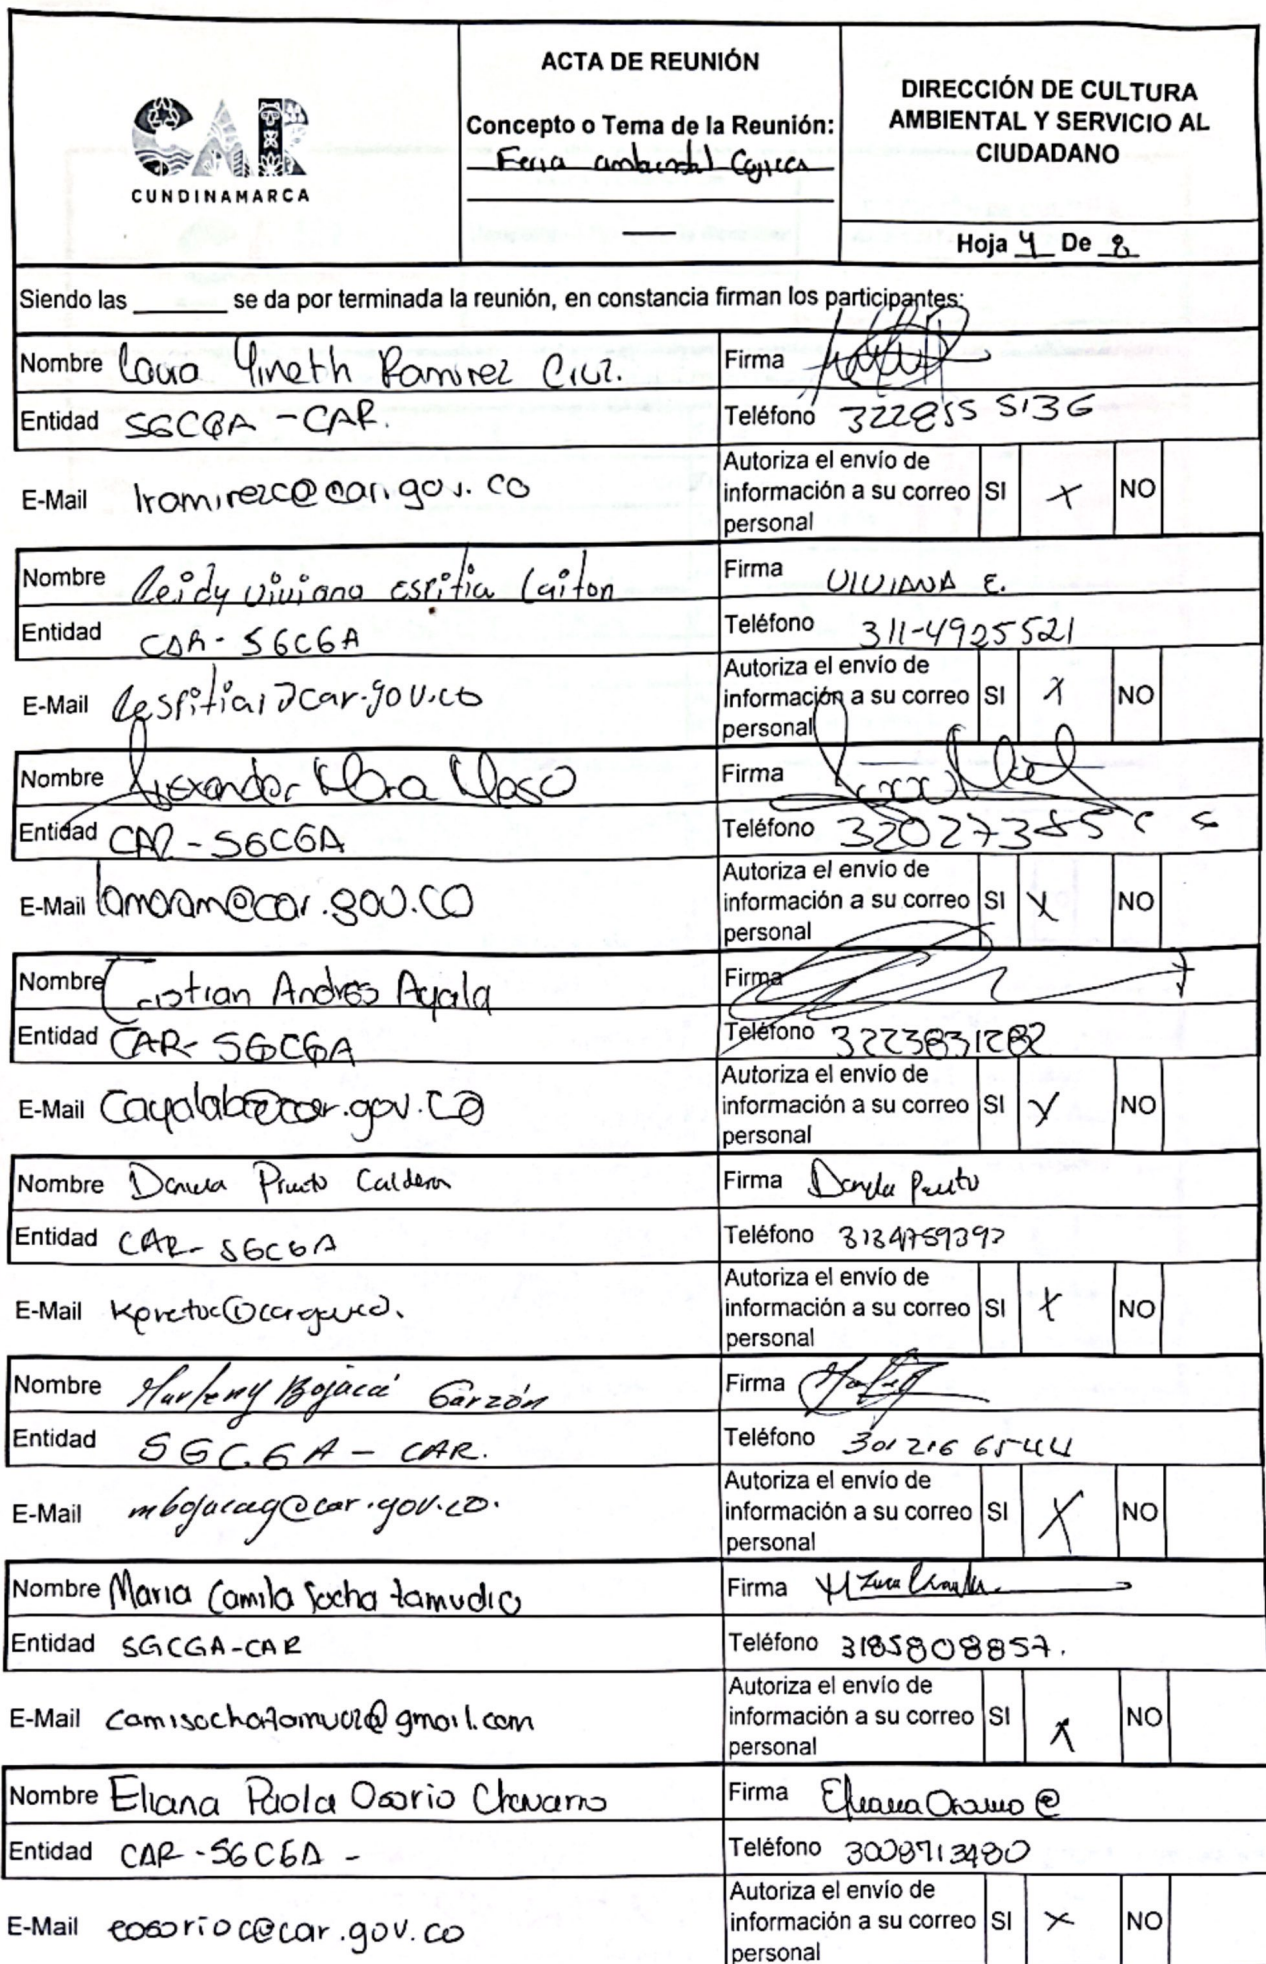 CAR
CUNDINAMARCA
ACTA DE REUNIÓN
Concepto o Tema de la Reunión:
Feria ambiental Cajica
DIRECCIÓN DE CULTURA
AMBIENTAL Y SERVICIO AL
CIUDADANO
Hoja 4 De 8
Siendo las ______ se da por terminada la reunión, en constancia firman los participantes:
Nombre Laura Yineth Ramirez Cruz. Firma
Entidad SGCGA - CAR. Teléfono 322855 5136
E-Mail lramirezc@car.gov.co
Autoriza el envío de
información a su correo SI X NO
personal
Nombre Leidy Viviana Espitia Laiton Firma VIVIANA E.
Entidad CAR - SGCGA Teléfono 311-4925521
E-Mail lespitial@car.gov.co
Autoriza el envío de
información a su correo SI X NO
personal
Nombre Alexander Mora Firma
Entidad CAR - SGCGA Teléfono
E-Mail lamoram@car.gov.co
Autoriza el envío de
información a su correo SI X NO
personal
Nombre Cristian Andres Ayala Firma
Entidad CAR - SGCGA Teléfono 3223831282
E-Mail cayalab@car.gov.co
Autoriza el envío de
información a su correo SI X NO
personal
Nombre Daniela Prieto Calderon Firma Daniela Prieto
Entidad CAR - SGCGA Teléfono
E-Mail
Autoriza el envío de
información a su correo SI X NO
personal
Nombre Marleny Bojacá Garzón Firma
Entidad SGCGA - CAR. Teléfono 301 216 6544
E-Mail mbojacag@car.gov.co.
Autoriza el envío de
información a su correo SI X NO
personal
Nombre Maria Camila Socha tamudio Firma
Entidad SGCGA-CAR Teléfono 3185808857.
E-Mail
Autoriza el envío de
información a su correo SI X NO
personal
Nombre Eliana Paola Osorio Chavarro Firma Eliana Osorio C
Entidad CAR - SGCGA - Teléfono 3008713480
E-Mail eosorioc@car.gov.co
Autoriza el envío de
información a su correo SI X NO
personal